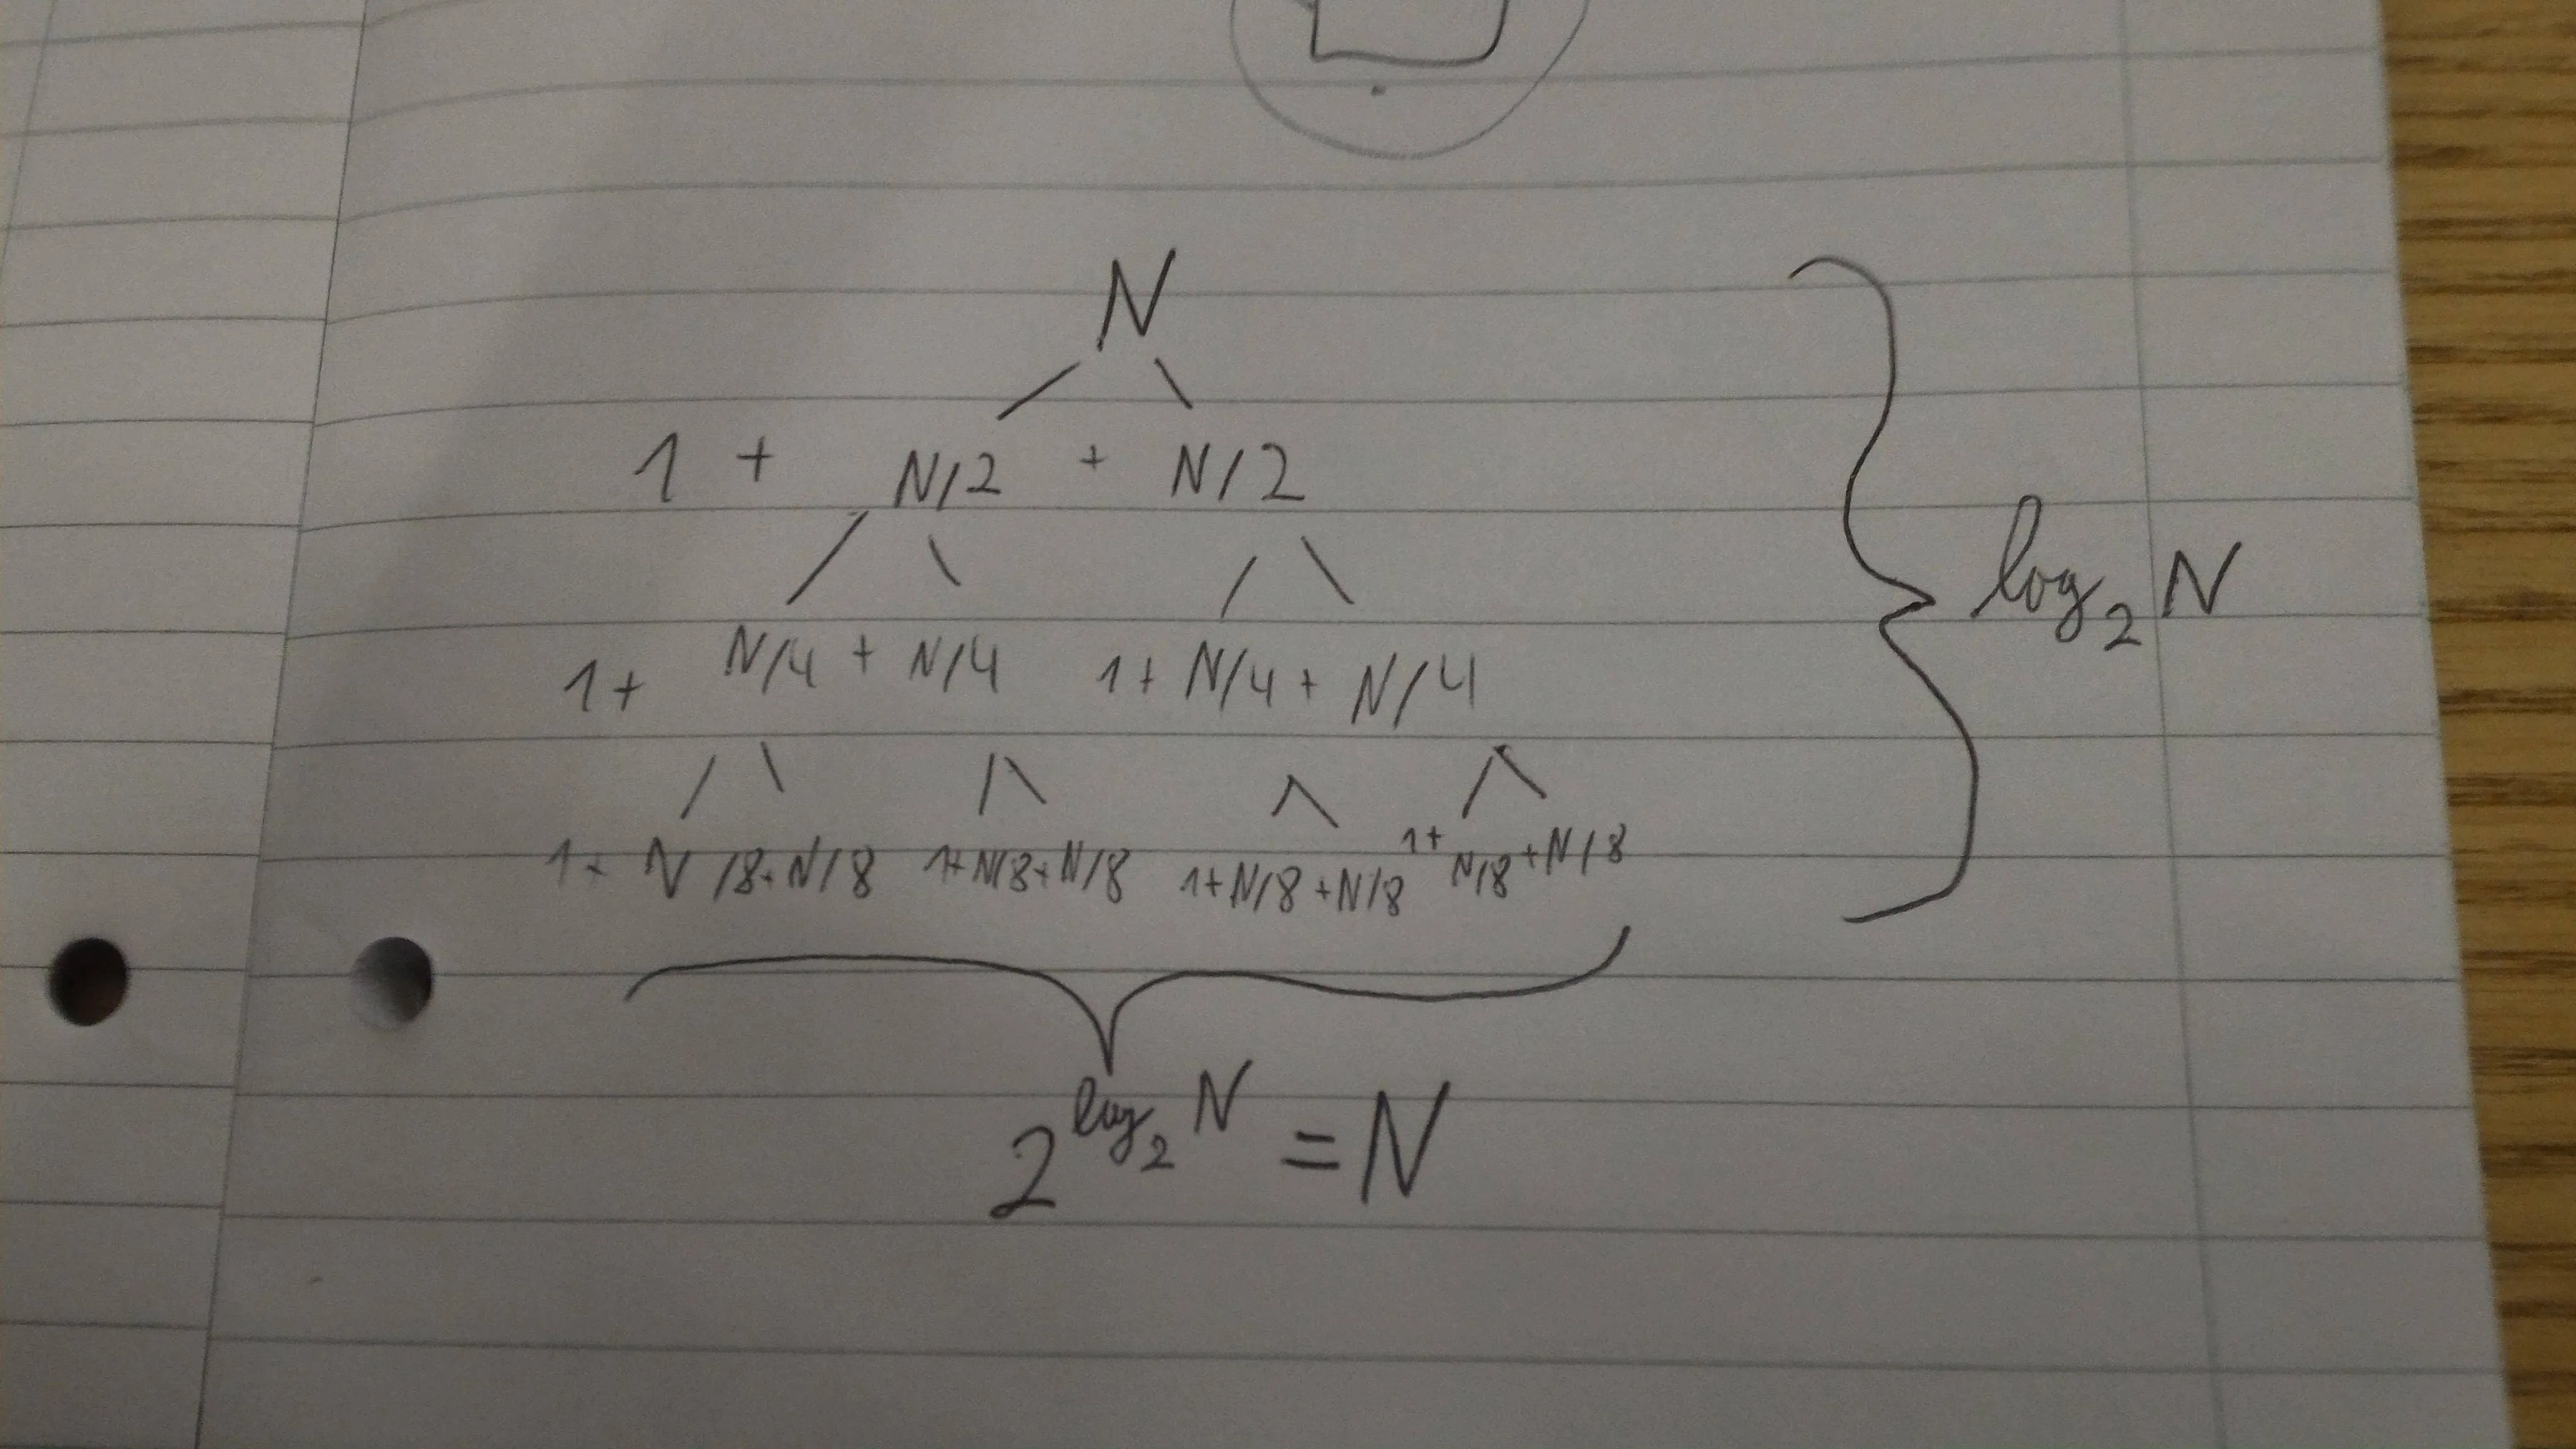 N
1 + N/2 + N/2
1 + N/4 + N/4 1 + N/4 + N/4
1 + N/8 + N/8 1 + N/8 + N/8 1 + N/8 + N/8 1 + N/8 + N/8
log₂ N
2^log₂ N = N